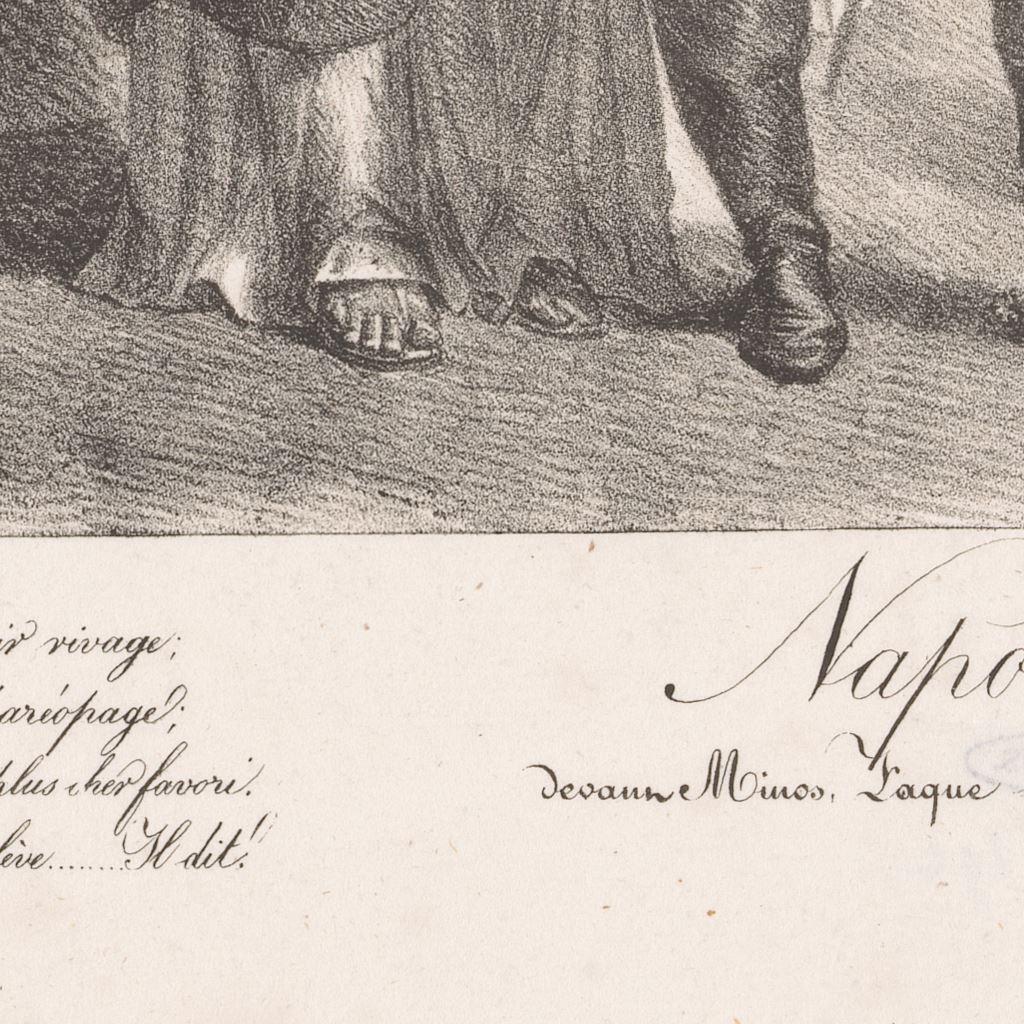 rivage;
aréopage;
plus cher favori.
lève........Il dit!
Napo
devant Minos, Eaque